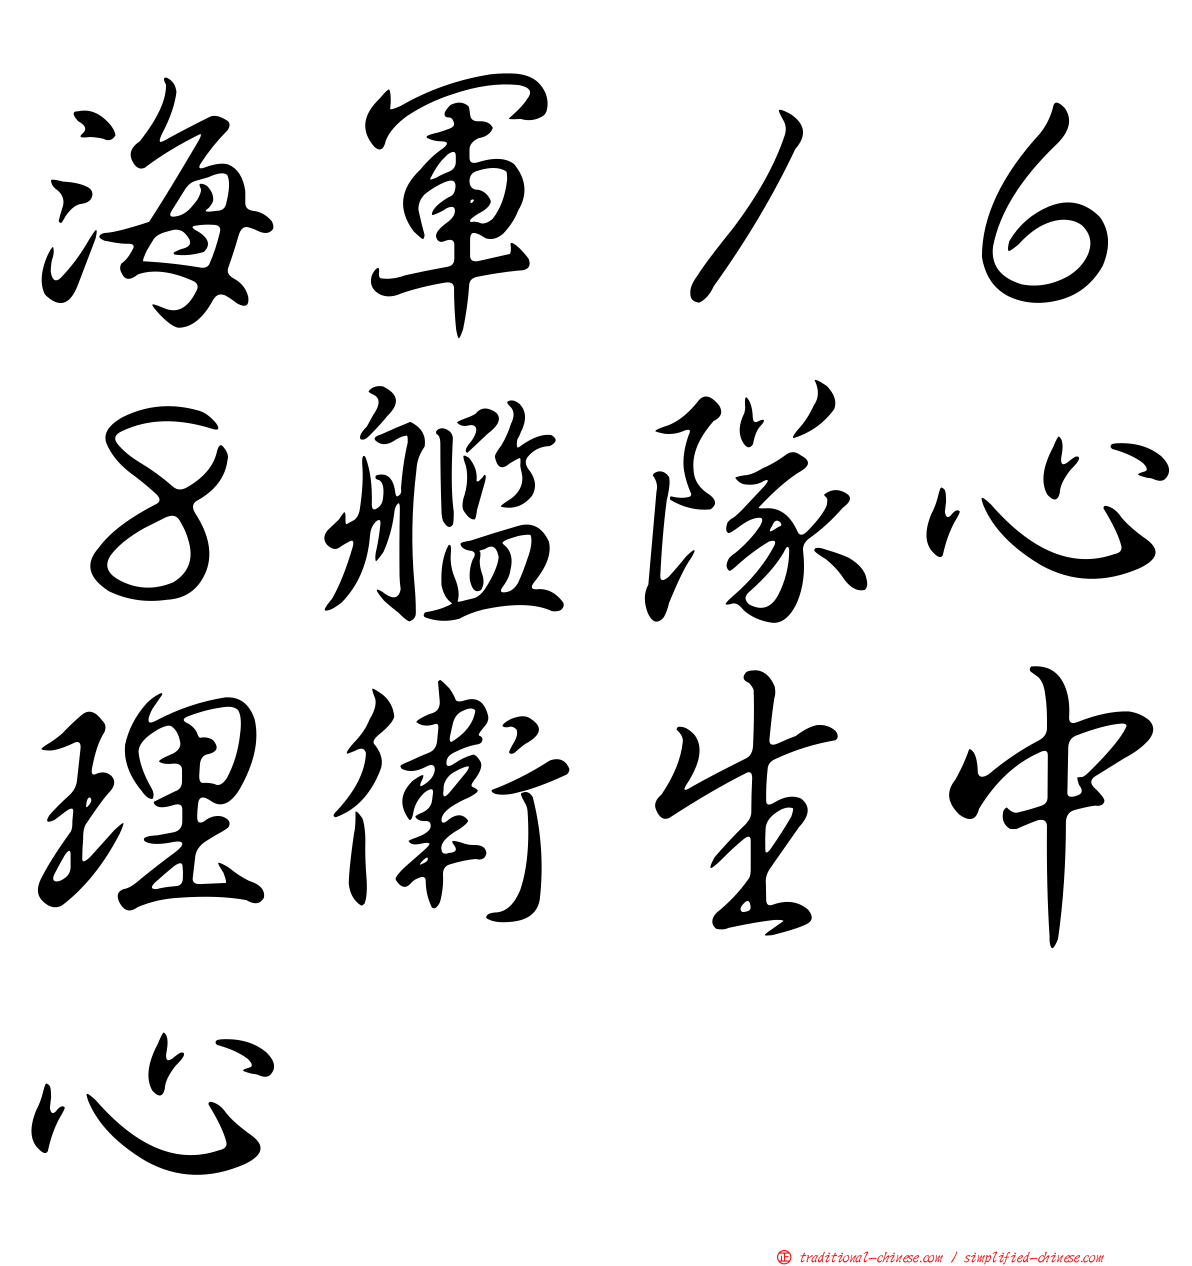 海軍16
8艦隊心
理衛生中
心
正 traditional-chinese.com / simplified-chinese.com